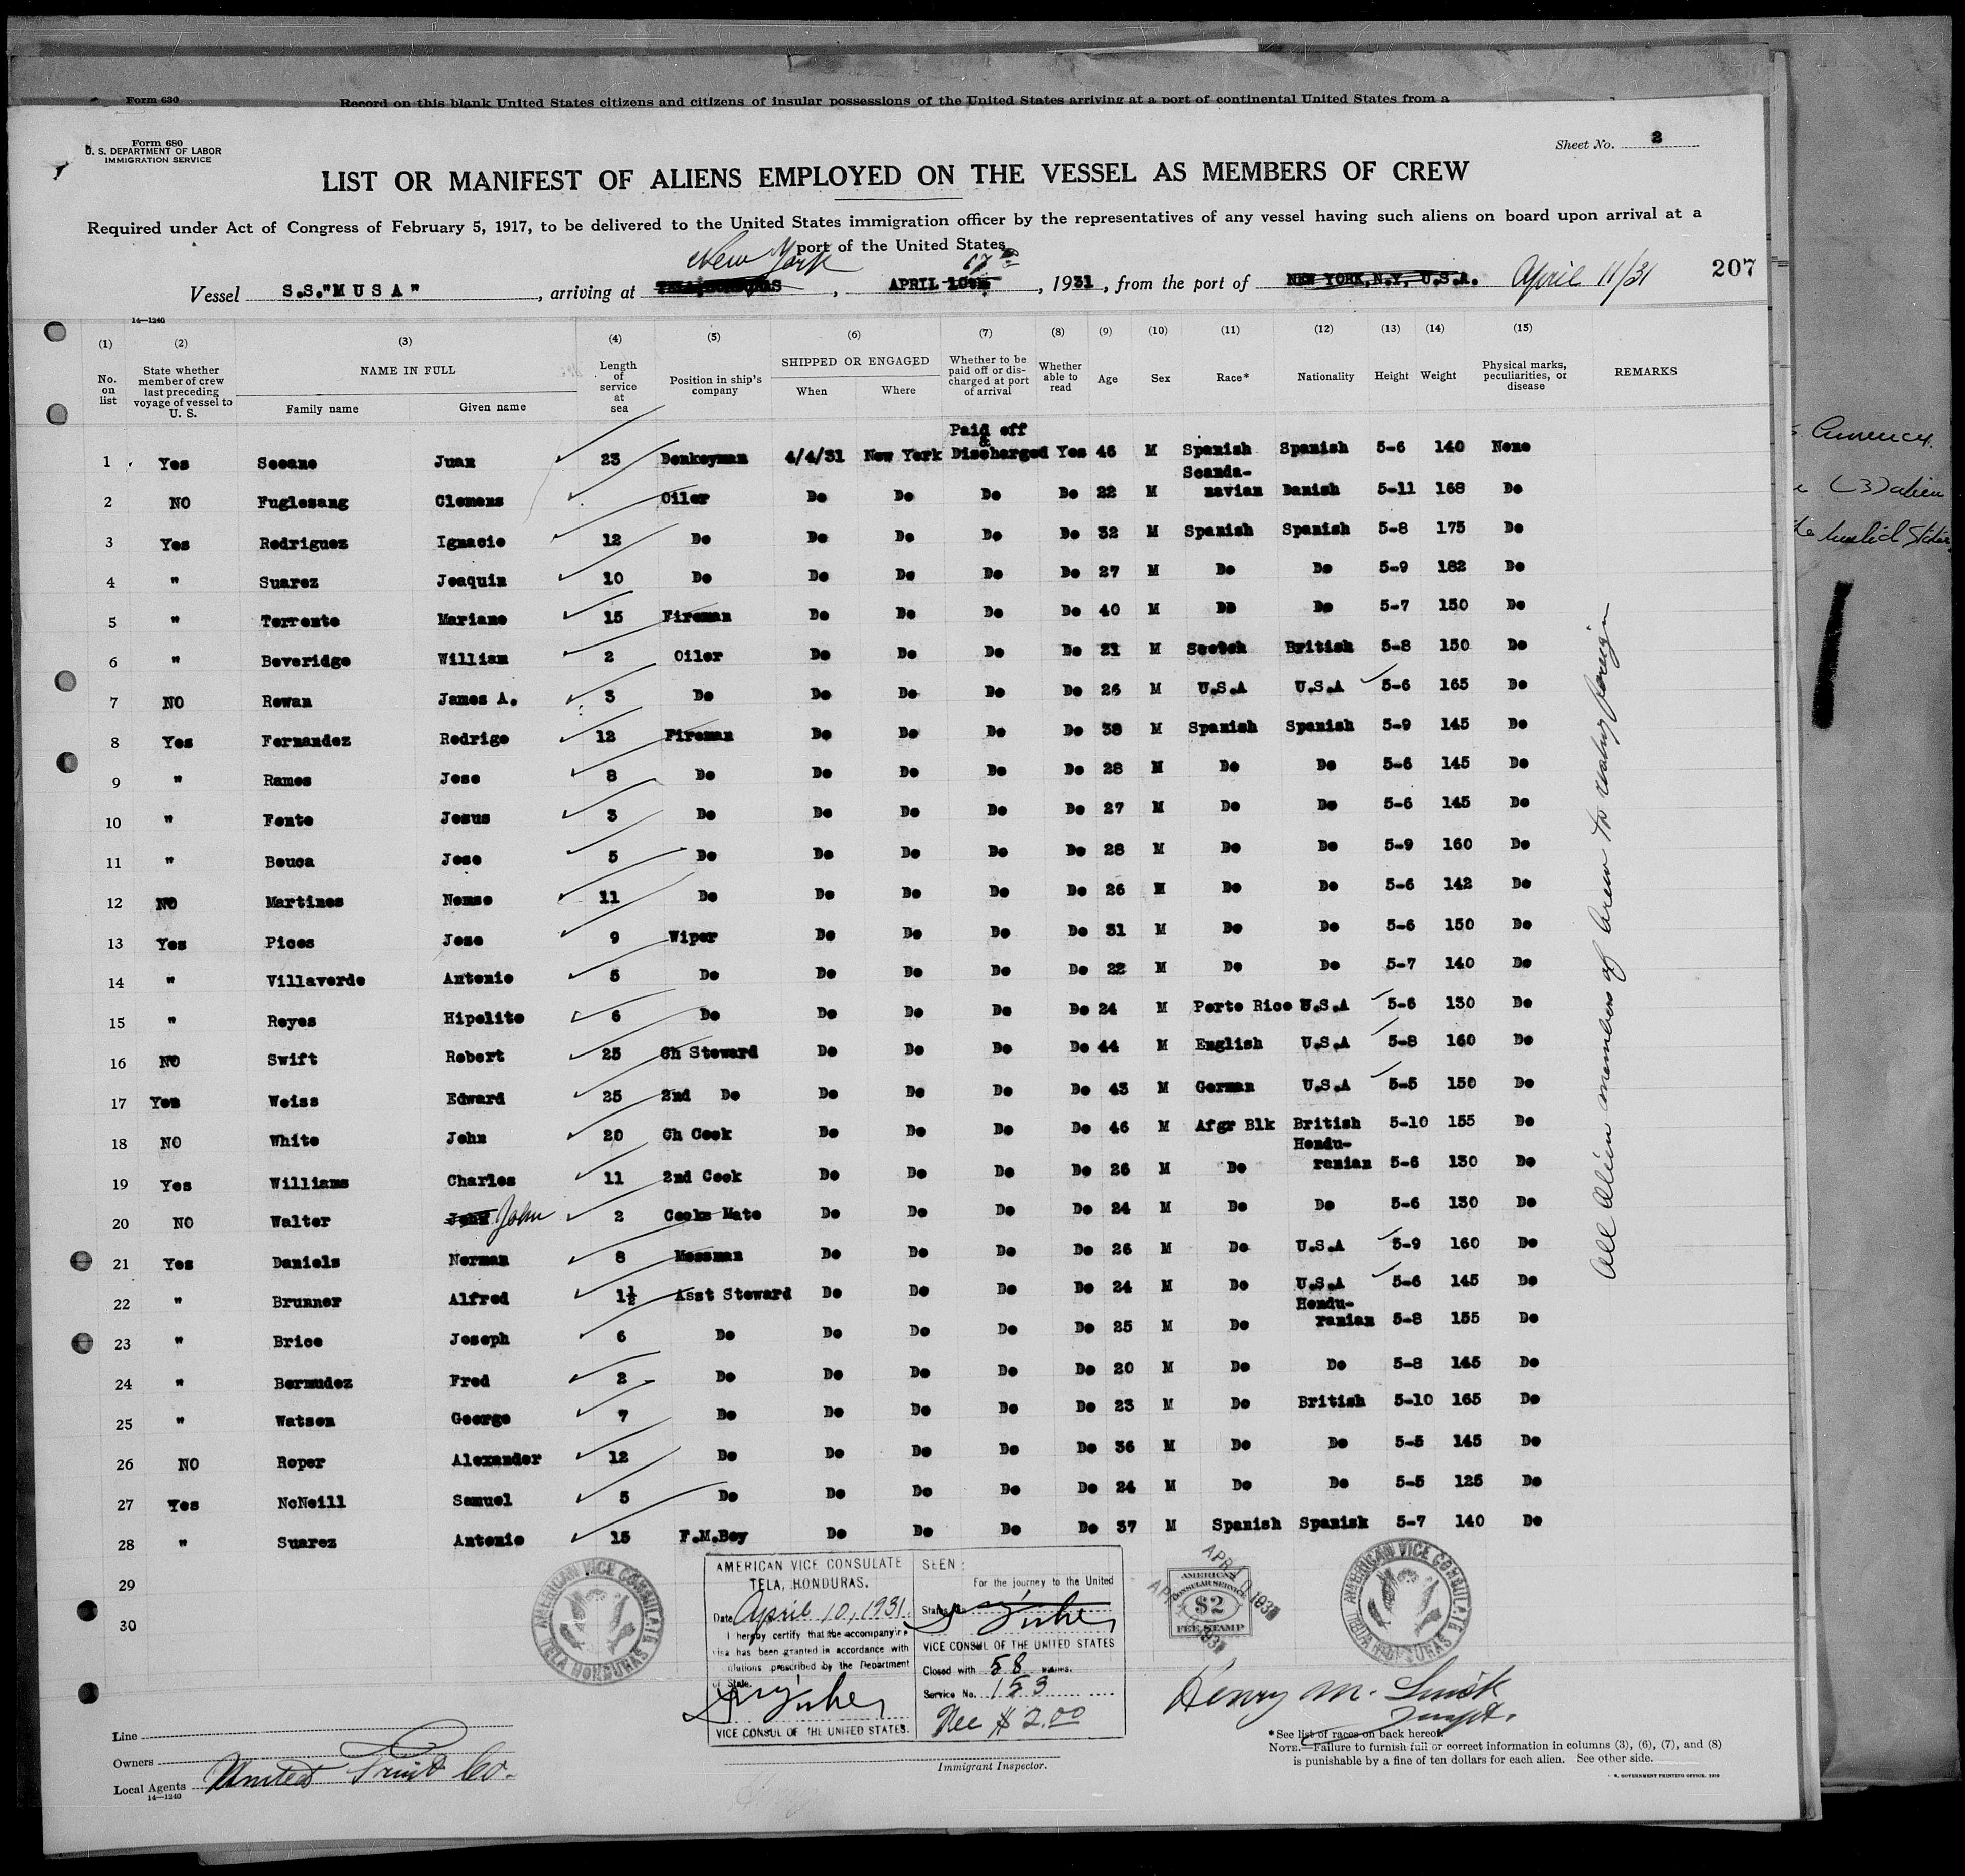 Form 630
Record on this blank United States citizens and citizens of insular possessions of the United States arriving at a port of continental United States from a
Form 680
U. S. DEPARTMENT OF LABOR
IMMIGRATION SERVICE
Sheet No. 2
LIST OR MANIFEST OF ALIENS EMPLOYED ON THE VESSEL AS MEMBERS OF CREW
Required under Act of Congress of February 5, 1917, to be delivered to the United States immigration officer by the representatives of any vessel having such aliens on board upon arrival at a
port of the United States
New York
Vessel S.S."MUSA", arriving at TELA, HONDURAS, APRIL 10th, 1931, from the port of NEW YORK, N.Y. U.S.A. April 11/31
207
14—1240
(1) (2) (3) (4) (5) (6) (7) (8) (9) (10) (11) (12) (13) (14) (15)
No. on list
State whether member of crew last preceding voyage of vessel to U. S.
NAME IN FULL
Family name Given name
Length of service at sea
Position in ship's company
SHIPPED OR ENGAGED
When Where
Whether to be paid off or discharged at port of arrival
Whether able to read
Age Sex Race* Nationality Height Weight
Physical marks, peculiarities, or disease
REMARKS
1 Yes Seoane Juan 23 Donkeyman 4/4/31 New York Paid off & Discharged Yes 46 M Spanish Spanish 5-6 140 None
2 NO Fuglesang Clemens Oiler Do Do Do Do 22 M Scandanavian Danish 5-11 168 Do
3 Yes Rodriguez Ignacio 12 Do Do Do Do Do 32 M Spanish Spanish 5-8 175 Do
4 " Suarez Joaquin 10 Do Do Do Do Do 27 M Do Do 5-9 182 Do
5 " Torrente Mariano 15 Fireman Do Do Do Do 40 M Do Do 5-7 150 Do
6 " Beveridge William 2 Oiler Do Do Do Do 21 M Scotch British 5-8 150 Do
7 NO Rowan James A. 3 Do Do Do Do Do 26 M U.S.A U.S.A 5-6 165 Do
8 Yes Fernandez Rodrigo 12 Fireman Do Do Do Do 38 M Spanish Spanish 5-9 145 Do
9 " Ramos Jose 8 Do Do Do Do Do 28 M Do Do 5-6 145 Do
10 " Fente Jesus 3 Do Do Do Do Do 27 M Do Do 5-6 145 Do
11 " Bouca Jose 5 Do Do Do Do Do 28 M Do Do 5-9 160 Do
12 NO Martines Nemso 11 Do Do Do Do Do 26 M Do Do 5-6 142 Do
13 Yes Pices Jose 9 Wiper Do Do Do Do 31 M Do Do 5-6 150 Do
14 " Villaverde Antonio 5 Do Do Do Do Do 22 M Do Do 5-7 140 Do
15 " Reyes Hipolito 6 Do Do Do Do Do 24 M Porto Rico U.S.A 5-6 130 Do
16 NO Swift Robert 25 Ch Steward Do Do Do Do 44 M English U.S.A 5-8 160 Do
17 Yes Weiss Edward 25 2nd Do Do Do Do Do 43 M German U.S.A 5-5 150 Do
18 NO White John 20 Ch Cook Do Do Do Do 46 M Afgr Blk British 5-10 155 Do
19 Yes Williams Charles 11 2nd Cook Do Do Do Do 26 M Do Honduranian 5-6 130 Do
20 NO Walter John John 2 Cooks Mate Do Do Do Do 24 M Do Do 5-6 130 Do
21 Yes Daniels Norman 8 Messman Do Do Do Do 26 M Do U.S.A 5-9 160 Do
22 " Brunner Alfred 1½ Asst Steward Do Do Do Do 24 M Do U.S.A 5-6 145 Do
23 " Brice Joseph 6 Do Do Do Do Do 25 M Do Honduranian 5-8 155 Do
24 " Bermudez Fred 2 Do Do Do Do Do 20 M Do Do 5-8 145 Do
25 " Watson George 7 Do Do Do Do Do 23 M Do British 5-10 165 Do
26 NO Roper Alexander 12 Do Do Do Do Do 36 M Do Do 5-5 145 Do
27 Yes McNeill Samuel 5 Do Do Do Do Do 24 M Do Do 5-5 125 Do
28 " Suarez Antonio 15 F.M.Boy Do Do Do Do 37 M Spanish Spanish 5-7 140 Do
29
30
All Alien members of Crew to reship foreign
AMERICAN VICE CONSULATE
TELA HONDURAS
AMERICAN VICE CONSULATE
TELA, HONDURAS.
Date April 10, 1931.
I hereby certify that the accompanying
visa has been granted in accordance with
regulations prescribed by the Department
of State.
VICE CONSUL OF THE UNITED STATES.
SEEN:
For the journey to the United
States
VICE CONSUL OF THE UNITED STATES
Closed with 58 names.
Service No. 153
Fee $2.00
AMERICAN
CONSULAR SERVICE
$2
FEE STAMP
APR 10 1931
APR 10 1931
AMERICAN VICE CONSULATE
TELA HONDURAS
Line
Owners
Local Agents United Fruit Co.
14—1240
Immigrant Inspector.
*See list of races on back hereof.
NOTE.—Failure to furnish full or correct information in columns (3), (6), (7), and (8)
is punishable by a fine of ten dollars for each alien. See other side.